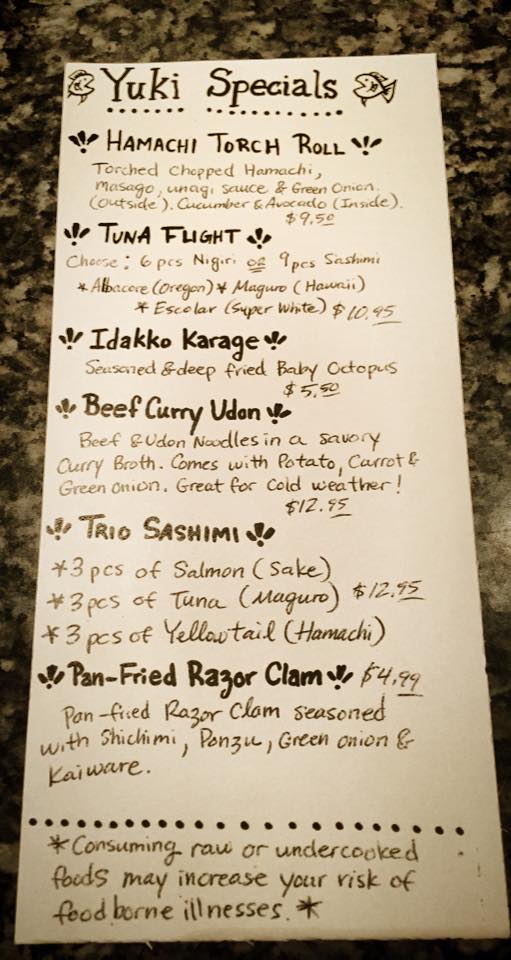 Yuki Specials
HAMACHI TORCH ROLL
Torched Chopped Hamachi,
masago, unagi sauce & Green Onion.
(Outside). Cucumber & Avocado (Inside).
$9.50
TUNA FLIGHT
Choose: 6 pcs Nigiri or 9 pcs Sashimi
*Albacore (Oregon) * Maguro (Hawaii)
* Escolar (Super White) $10.95
Idakko Karage
Seasoned & deep fried Baby Octopus
$5.50
Beef Curry Udon
Beef & Udon Noodles in a savory
Curry Broth. Comes with Potato, Carrot &
Green onion. Great for cold weather!
$12.95
TRIO SASHIMI
*3 pcs of Salmon (Sake)
*3 pcs of Tuna (Maguro) $12.95
*3 pcs of Yellowtail (Hamachi)
Pan-Fried Razor Clam $4.99
Pan-fried Razor Clam seasoned
with Shichimi, Ponzu, Green onion &
Kaiware.
*Consuming raw or undercooked
foods may increase your risk of
foodborne illnesses.*